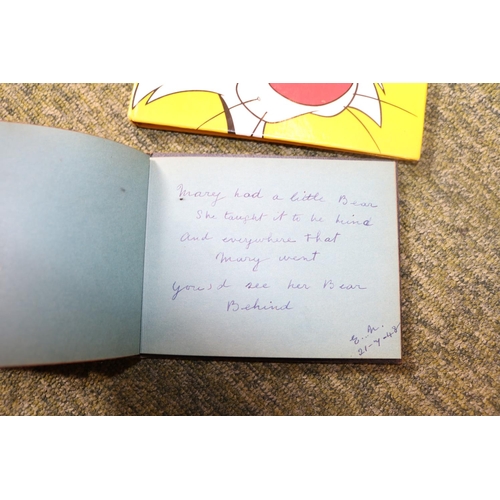 Mary had a little Bear
She taught it to be kind
And everywhere that
Mary went
You'd see her Bear
Behind
E. M.
21-4-48